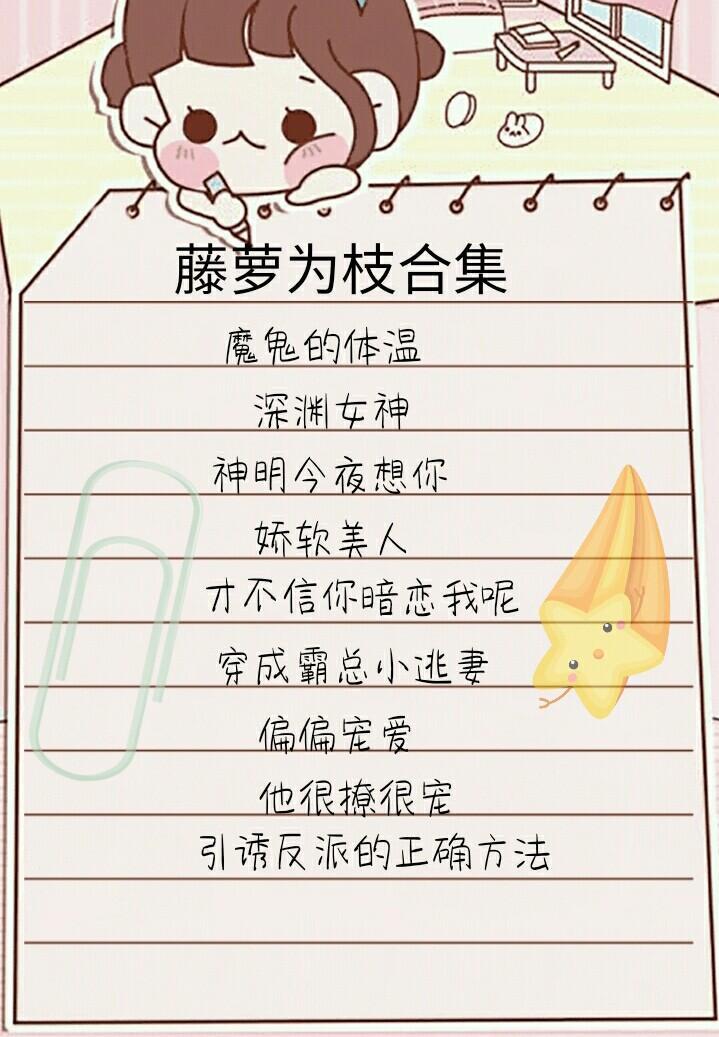 藤萝为枝合集
魔鬼的体温
深渊女神
神明今夜想你
娇软美人
才不信你暗恋我呢
穿成霸总小逃妻
偏偏宠爱
他很撩很宠
引诱反派的正确方法